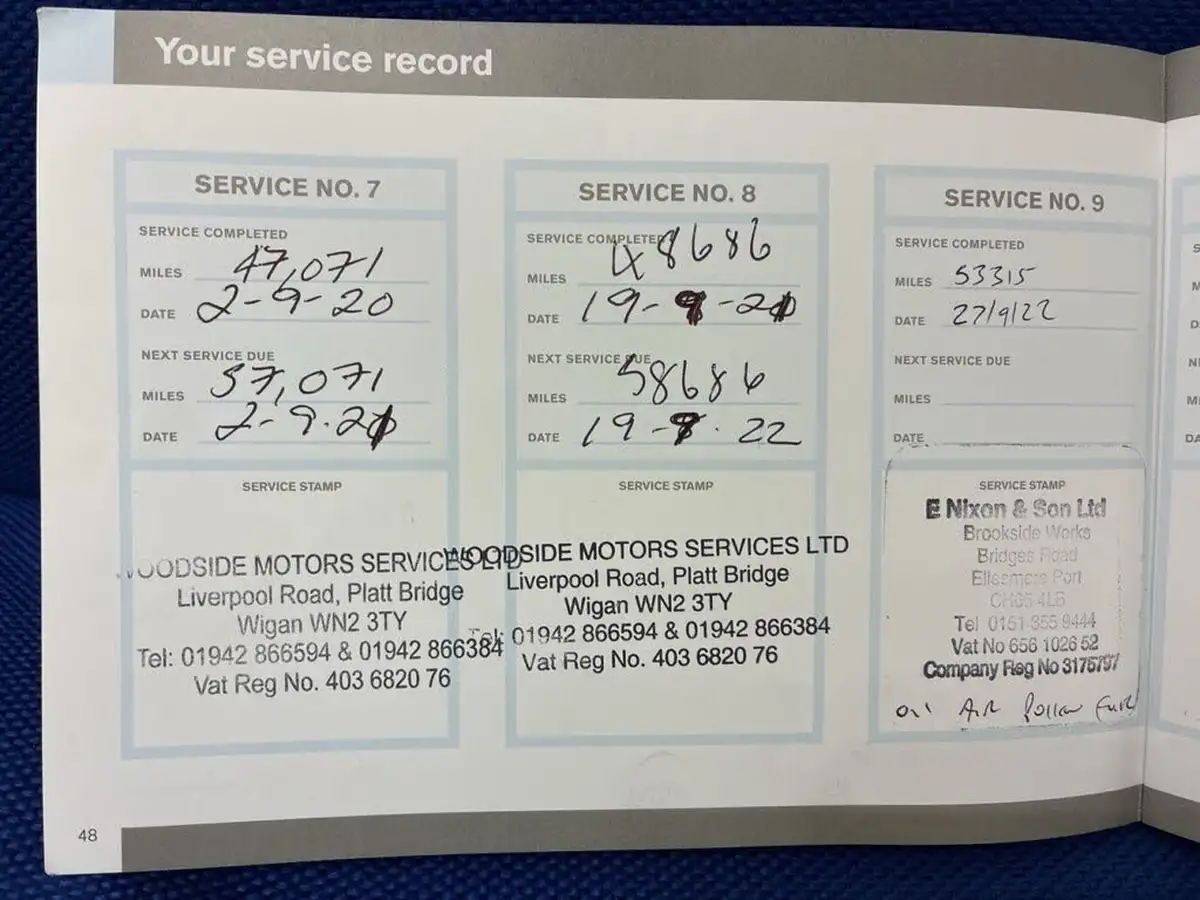 Your service record
SERVICE NO. 7
SERVICE COMPLETED
MILES 47,071
DATE 2-9-20
NEXT SERVICE DUE
MILES 57,071
DATE 2-9.21
SERVICE STAMP
WOODSIDE MOTORS SERVICES LTD
Liverpool Road, Platt Bridge
Wigan WN2 3TY
Tel: 01942 866594 & 01942 866384
Vat Reg No. 403 6820 76
SERVICE NO. 8
SERVICE COMPLETED
MILES 48686
DATE 19-9-21
NEXT SERVICE DUE
MILES 58686
DATE 19-9.22
SERVICE STAMP
WOODSIDE MOTORS SERVICES LTD
Liverpool Road, Platt Bridge
Wigan WN2 3TY
Tel: 01942 866594 & 01942 866384
Vat Reg No. 403 6820 76
SERVICE NO. 9
SERVICE COMPLETED
MILES 53315
DATE 27/9/22
NEXT SERVICE DUE
MILES
DATE
SERVICE STAMP
E Nixon & Son Ltd
Brookside Works
Bridges Road
Ellesmere Port
CH65 4LB
Tel 0151 355 9444
Vat No 656 1026 52
Company Reg No 3175797
Oil AIR Pollen
48